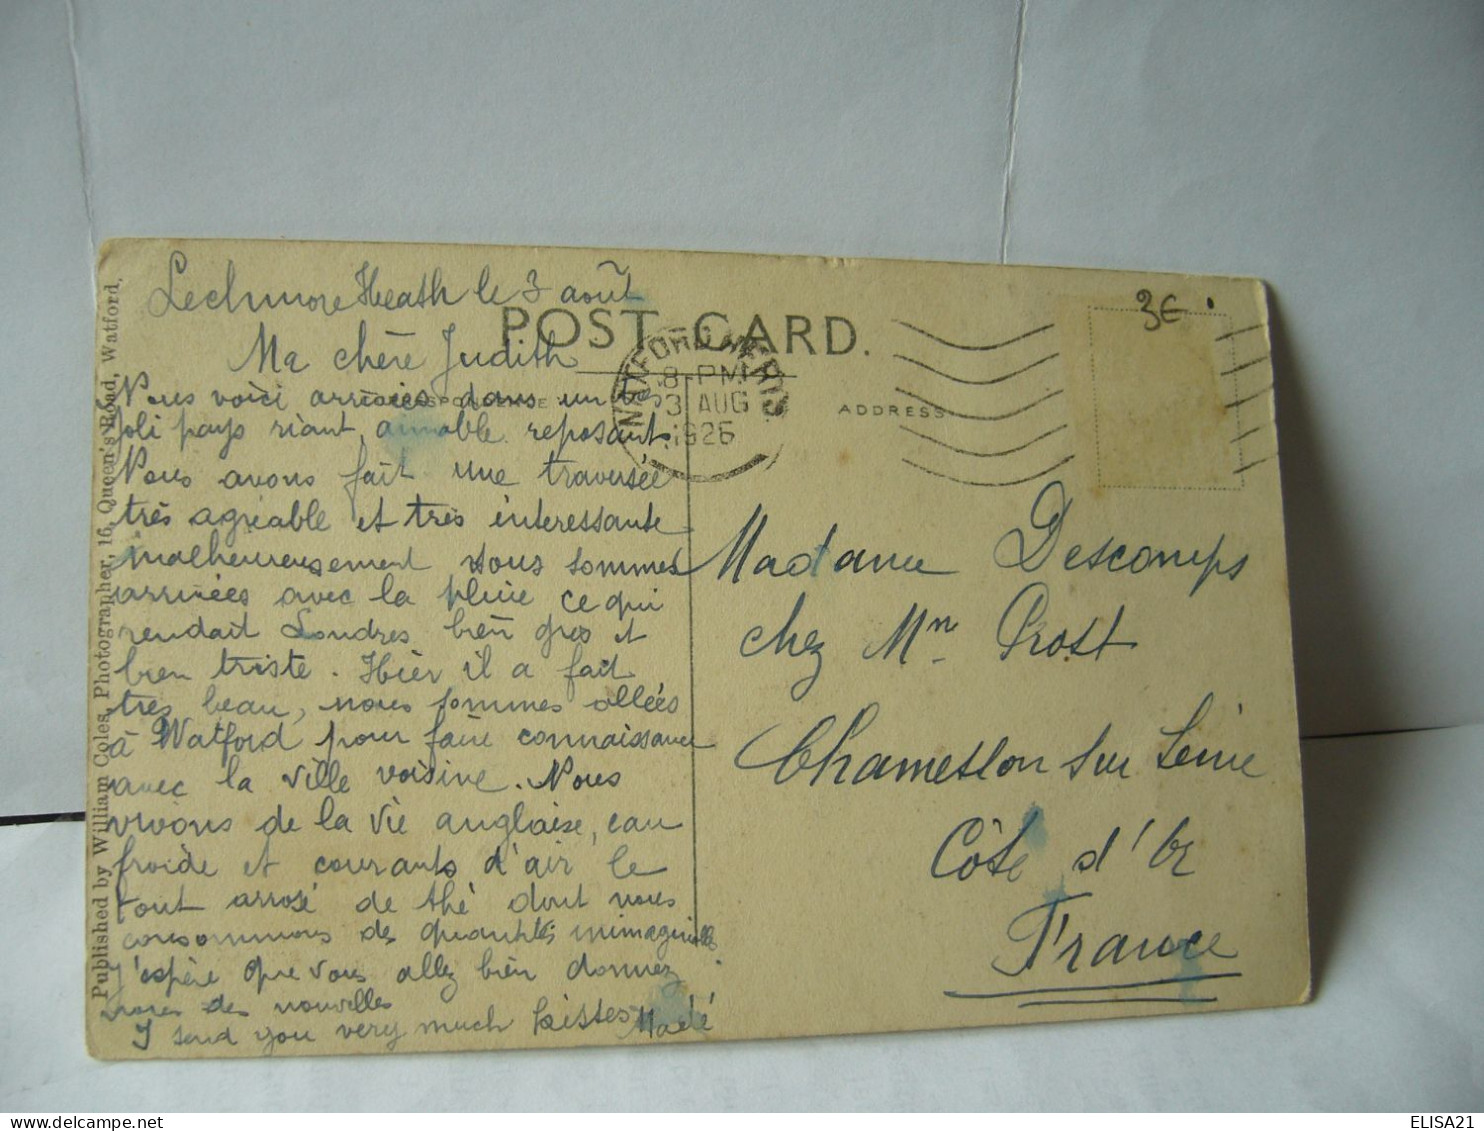 Lechmore Heath le 3 août
POST CARD.
Ma chère Judith
WATFORD HERTS
8-PM
3 AUG
1926
CORRESPONDENCE
ADDRESS
3€
Nous voici arrivées dans un très
joli pays riant, aimable reposant
Nous avons fait une traversée
très agréable et très intéressante
malheureusement nous sommes
arrivées avec la pluie ce qui
rendait Londres bien gris et
bien triste. Hier il a fait
très beau, nous sommes allées
à Watford pour faire connaissance
avec la ville voisine. Nous
vivons de la vie anglaise, eau
froide et courants d'air le
tout arrosé de thé dont nous
consommons des quantités inimaginables
J'espère que vous allez bien donnez
nous des nouvelles
I send you very much kisses Madé
Madame Descomps
chez Mn Prost
Chamesson sur Seine
Côte d'Or
France
Published by William Coles, Photographer, 16, Queen's Road, Watford.
ELISA21